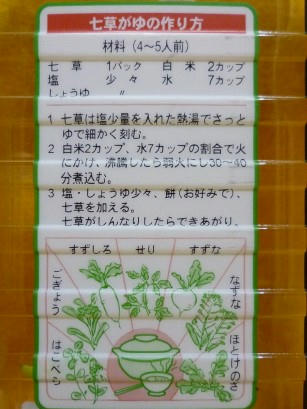 七草がゆの作り方
材料(4〜5人前)
七草 1パック 白米 2カップ
塩 少々 水 7カップ
しょうゆ 〃
1 七草は塩少量を入れた熱湯でさっと
ゆで細かく刻む。
2 白米2カップ、水7カップの割合で火
にかけ、沸騰したら弱火にし30〜40
分煮込む。
3 塩・しょうゆ少々、餅(お好みで)、
七草を加える。
七草がしんなりしたらできあがり。
すずしろ せり すずな
ごぎょう
なずな
はこべら
ほとけのざ